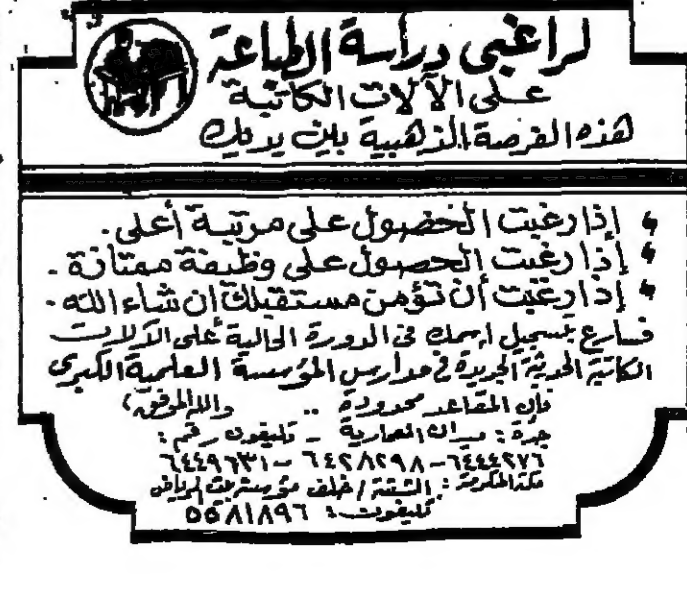 لراغبي دراسة الطباعة
على الآلات الكاتبة
هذه الفرصة الذهبية بين يديك
إذا رغبت الحصول على مرتبة أعلى.
إذا رغبت الحصول على وظيفة ممتازة.
إذا رغبت أن تؤمن مستقبلك إن شاء الله.
فسارع بتسجيل اسمك في الدورة الحالية على الآلات
الكاتبة الحديثة الجديدة في مدارس المؤسسة العلمية الكبرى
فإن المقاعد محدودة .. والله الموفق،
جدة: ميدان العمارية - تليفون رقم:
٦٤٤٤٢٧٦-٦٤٢٨٢٩٨-٦٤٤٩٦٣١
مكة المكرمة: الششة / خلف مؤسسة الرياض
تليفون: ٥٥٨١٨٩٦